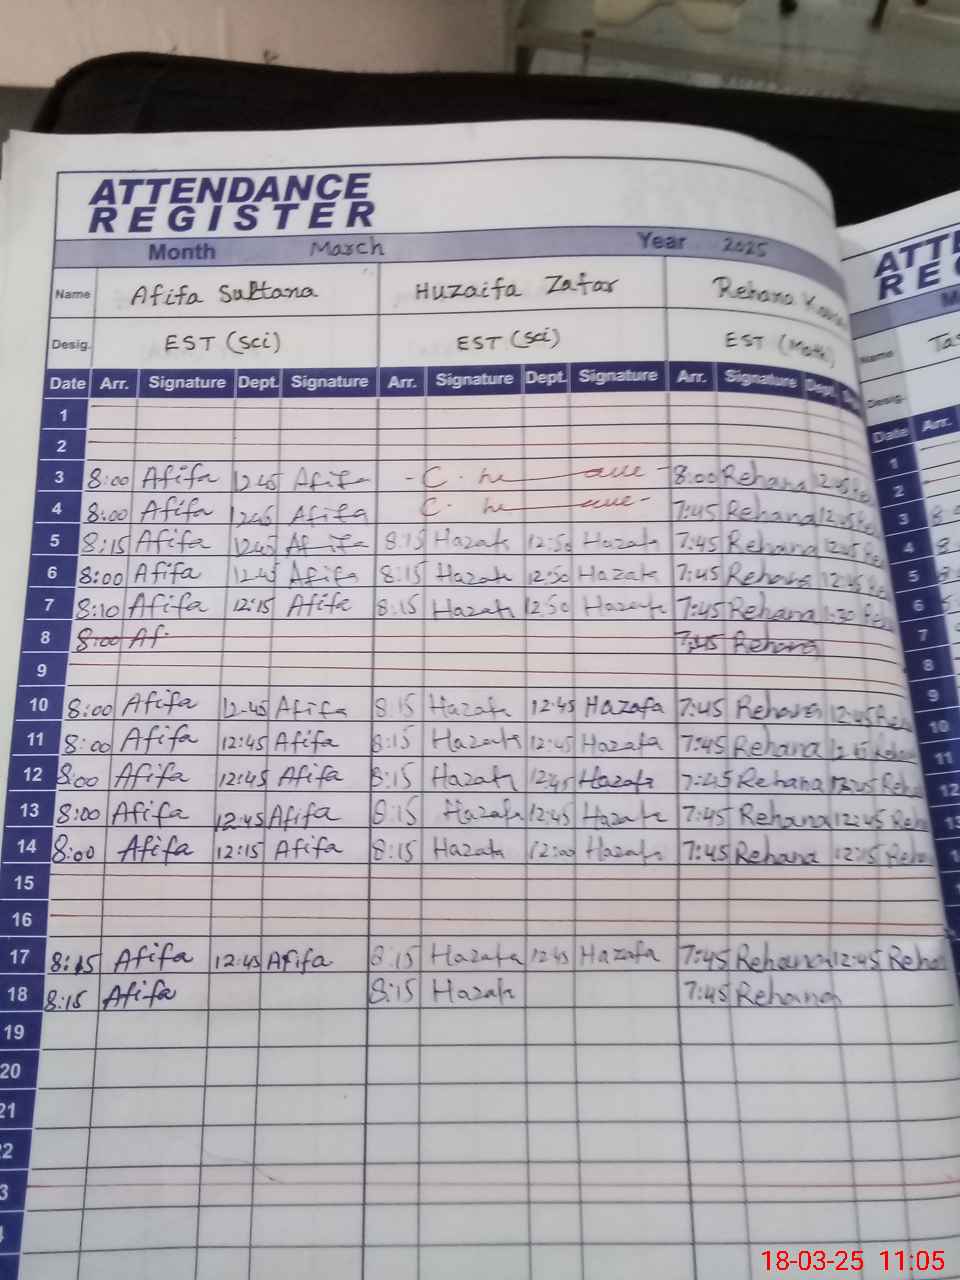 ATTENDANCE
REGISTER
Month March Year 2025
Name Afifa Sultana Huzaifa Zafar Rehana
Desig. EST (Sci) EST (Sci) EST (Math)
Date Arr. Signature Dept. Signature Arr. Signature Dept. Signature Arr. Signature Dept.
1
2
3 8:00 Afifa 12:45 Afifa - C. leave - 8:00 Rehana 12:45
4 8:00 Afifa 12:45 Afifa C. leave - 7:45 Rehana 12:45
5 8:15 Afifa 12:45 Afifa 8:15 Hazafa 12:50 Hazafa 7:45 Rehana 12:45
6 8:00 Afifa 12:45 Afifa 8:15 Hazafa 12:50 Hazafa 7:45 Rehana 12:45
7 8:10 Afifa 12:15 Afifa 8:15 Hazafa 12:50 Hazafa 7:45 Rehana 1:30
8 8:00 Af. 7:45 Rehana
9
10 8:00 Afifa 12:45 Afifa 8:15 Hazafa 12:45 Hazafa 7:45 Rehana 12:45
11 8:00 Afifa 12:45 Afifa 8:15 Hazafa 12:45 Hazafa 7:45 Rehana 12:45 Rehana
12 8:00 Afifa 12:45 Afifa 8:15 Hazafa 12:45 Hazafa 7:45 Rehana 12:45 Reha
13 8:00 Afifa 12:45 Afifa 8:15 Hazafa 12:45 Hazafa 7:45 Rehana 12:45 Reh
14 8:00 Afifa 12:15 Afifa 8:15 Hazafa 12:00 Hazafa 7:45 Rehana 12:15 Reha
15
16
17 8:15 Afifa 12:45 Afifa 8:15 Hazafa 12:45 Hazafa 7:45 Rehana 12:45 Reha
18 8:15 Afifa 8:15 Hazafa 7:45 Rehana
19
20
21
22
3
ATTE
RE
Name Tas
Desig.
Date Arr.
1
2
3
4
5
6
7
8
9
10
11
12
13
18-03-25 11:05